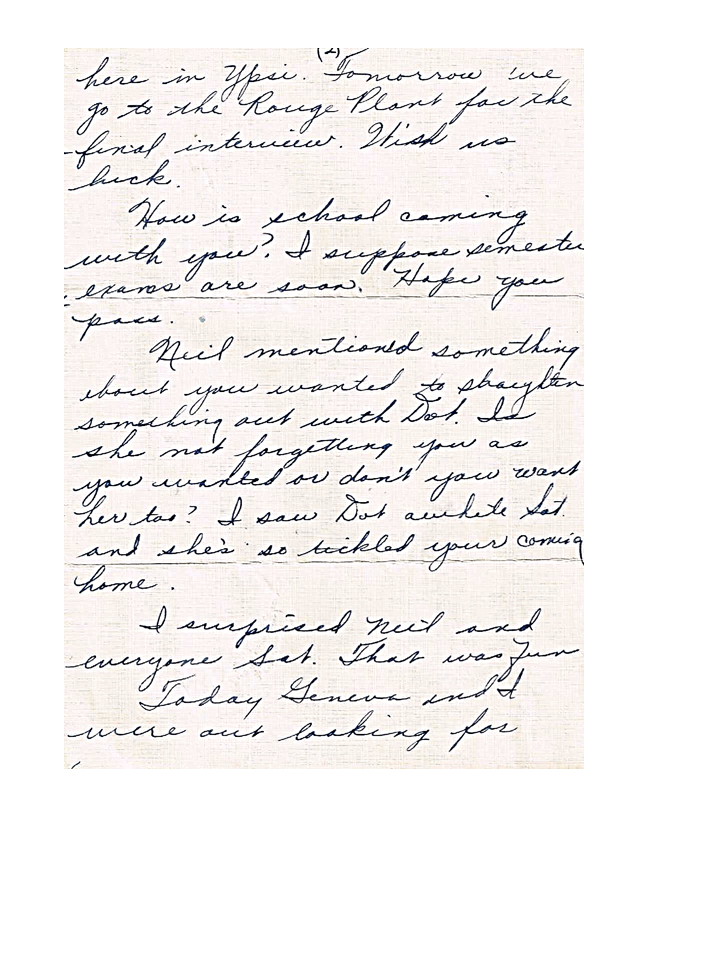 (2)
here in Ypsi. Tomorrow we
go to the Rouge Plant for the
final interview. Wish us
luck.
How is school coming
with you? I suppose semester
exams are soon. Hope you
pass.
Neil mentioned something
about you wanted to straighten
something out with Dot. Is
she not forgetting you as
you wanted or don't you want
her too? I saw Dot awhile Sat.
and she's so tickled your coming
home.
I surprised Neil and
everyone Sat. That was fun
Today Geneva and I
were out looking for